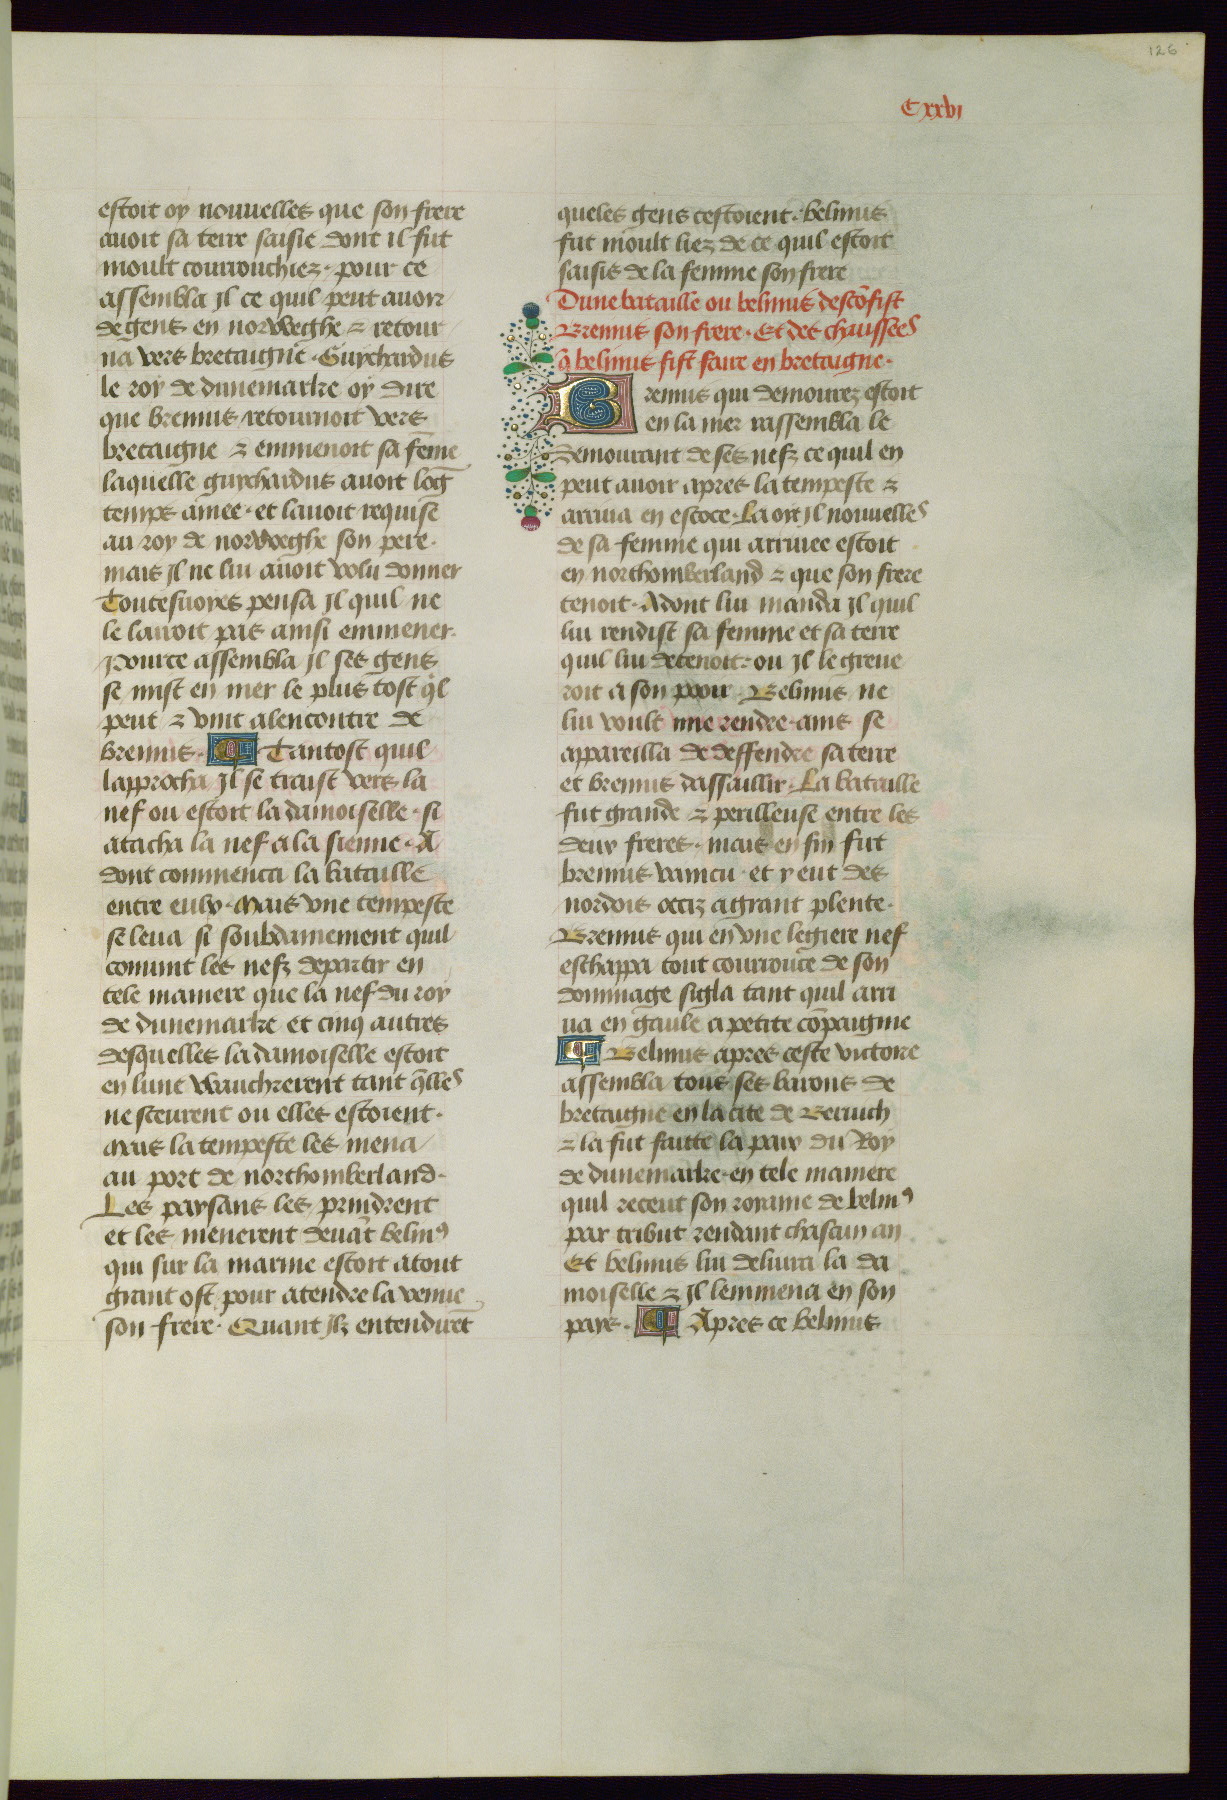 126
Cxxvi
estoit oy nouuelles que son frere
auoit sa terre saisie dont il fut
moult courrouchiez · pour ce
assembla jl ce quil peut auoir
de gens en norweghe ⁊ retour
na vers bretaigne · Guychardus
le roy de dannemarke oy dire
que brennus retournoit vers
bretaigne ⁊ emmenoit sa fem̄e
laquelle guychardus auoit lōg
temps amee · et lauoit requise
au roy de norweghe son pere ·
mais jl ne lui auoit volu donner
Toutesuoyes pensa jl quil ne
le lairoit pas ainsi emmener ·
Pource assembla jl ses gens
se mist en mer le plus tost q̄l
peut ⁊ vint alencontre de
brennus · ¶ Tantost quil
lapprocha jl se traist vers la
nef ou estoit la damoiselle · si
atacha la nef a la sienne · A
dont commenca la bataille
entre eulx · Mais vne tempeste
se leua si soubdainement quil
conuint les nefz departir en
tele maniere que la nef du roy
de dannemarke et cinq autres
desquelles la damoiselle estoit
en lune wauchrerent tant q̄lles
ne sceurent ou elles estoient ·
Mais la tempeste les mena
au port de northomberland ·
Les paysans les prindrent
et les menerent deuāt belinꝰ
qui sur la marine estoit atout
grant ost pour atendre la venue
son frere · Quant jlz entendirēt
queles gens cestoient · belinus
fut moult liez de ce quil estoit
saisis de la femme son frere
Dune bataille ou belinus descōfist
Brennus son frere · Et des chaussees
q̄ belinus fist faire en bretaigne ·
Brennus qui demourez estoit
en la mer rassembla le
demourant de ses nefz ce quil en
peut auoir apres la tempeste ⁊
arriua en escoce · La oyt jl nouuelles
de sa femme qui arriuee estoit
en northomberland ⁊ que son frere
tenoit · Adont lui manda jl quil
lui rendist sa femme et sa terre
quil lui detenoit · ou jl le greue
roit a son pooir · Belinus ne
lui voult mie rendre · ains se
appareilla de deffendre sa terre
et brennus dassaillir · La bataille
fut grande ⁊ perilleuse entre les
deux freres · mais en fin fut
brennus vaincu · et y eut des
nordois occiz a grant plente ·
Brennus qui en vne legiere nef
eschappa tout courrouce de son
dommage sigla tant quil arri
ua en gaule a petite cōpaignie
¶ Belinus apres ceste victoire
assembla tous ses barons de
bretaigne en la cite de Beruich
⁊ la fut faitte la paix du Roy
de dannemarke · en tele maniere
quil receut son royame de belinꝰ
par tribut rendant chascun an
Et belinus lui deliura la da
moiselle ⁊ jl lemmena en son
pays · ¶ Apres ce belinus